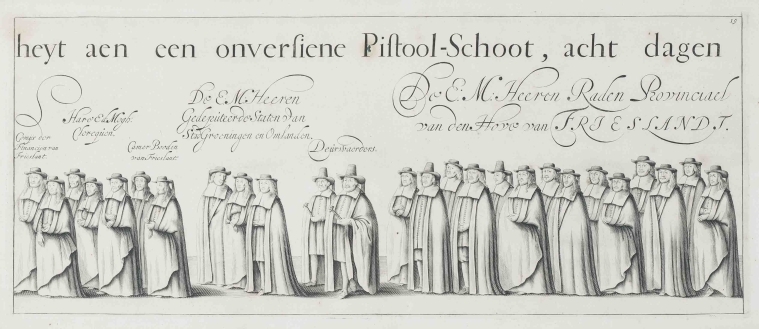 19
heyt aen een onversiene Pistool-Schoot, acht dagen
Haro Ed. Mogh.
Clercquen.
Comys der
Financien van
Frieslant.
Camer Boodin
van Frieslant.
De E. M. Heeren
Gedeputeerde Staten van
Stadt Groeningen en Omlanden.
Deurwaerders.
De E. M. Heeren Raden Provinciael
van den Hove van FRIESLANDT.